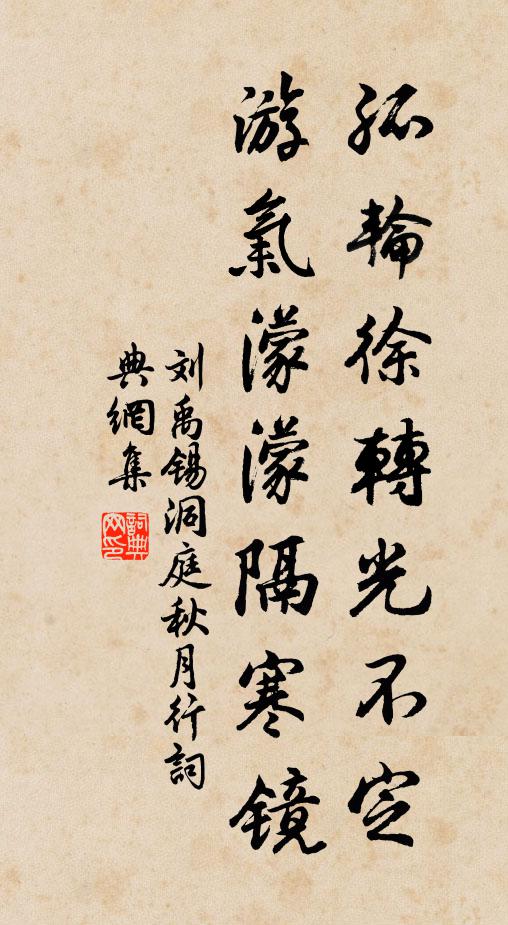 孤輪徐轉光不定
游氣濛濛隔寒镜
刘禹锡洞庭秋月行詞
典網集
詞典网印